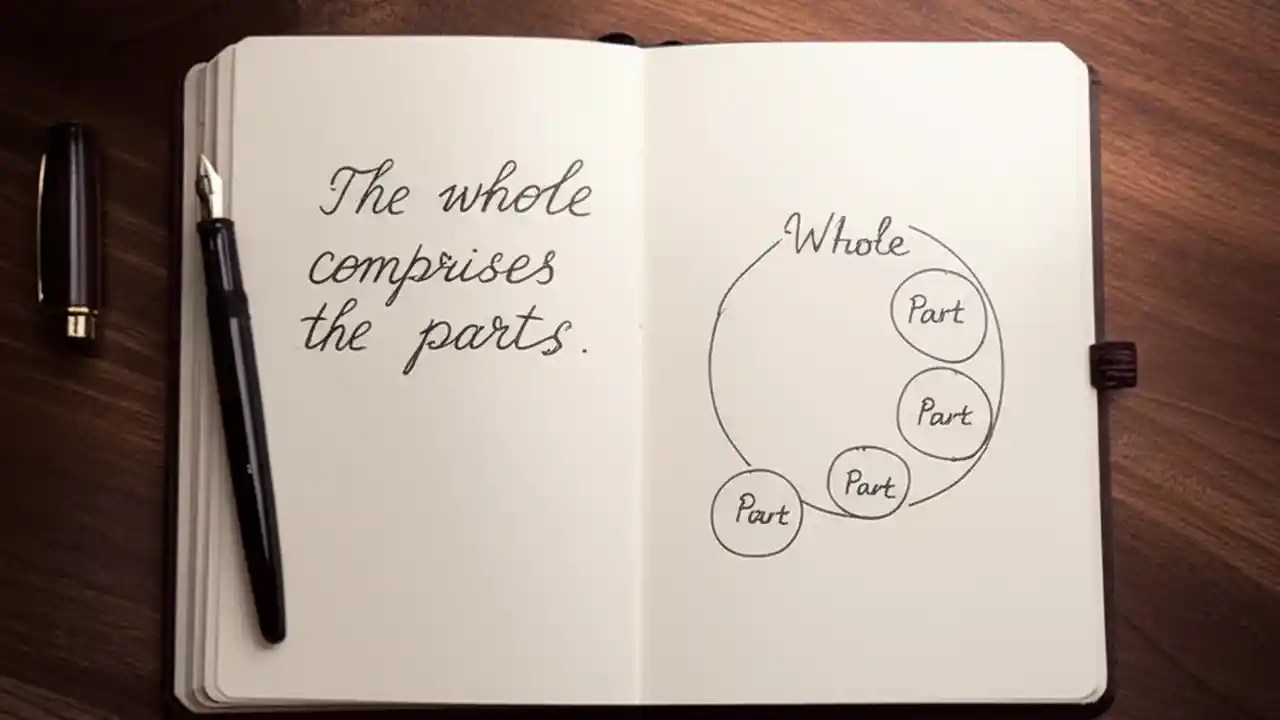 The whole
comprises
the parts.
Whole
Part
Part
Part
Part